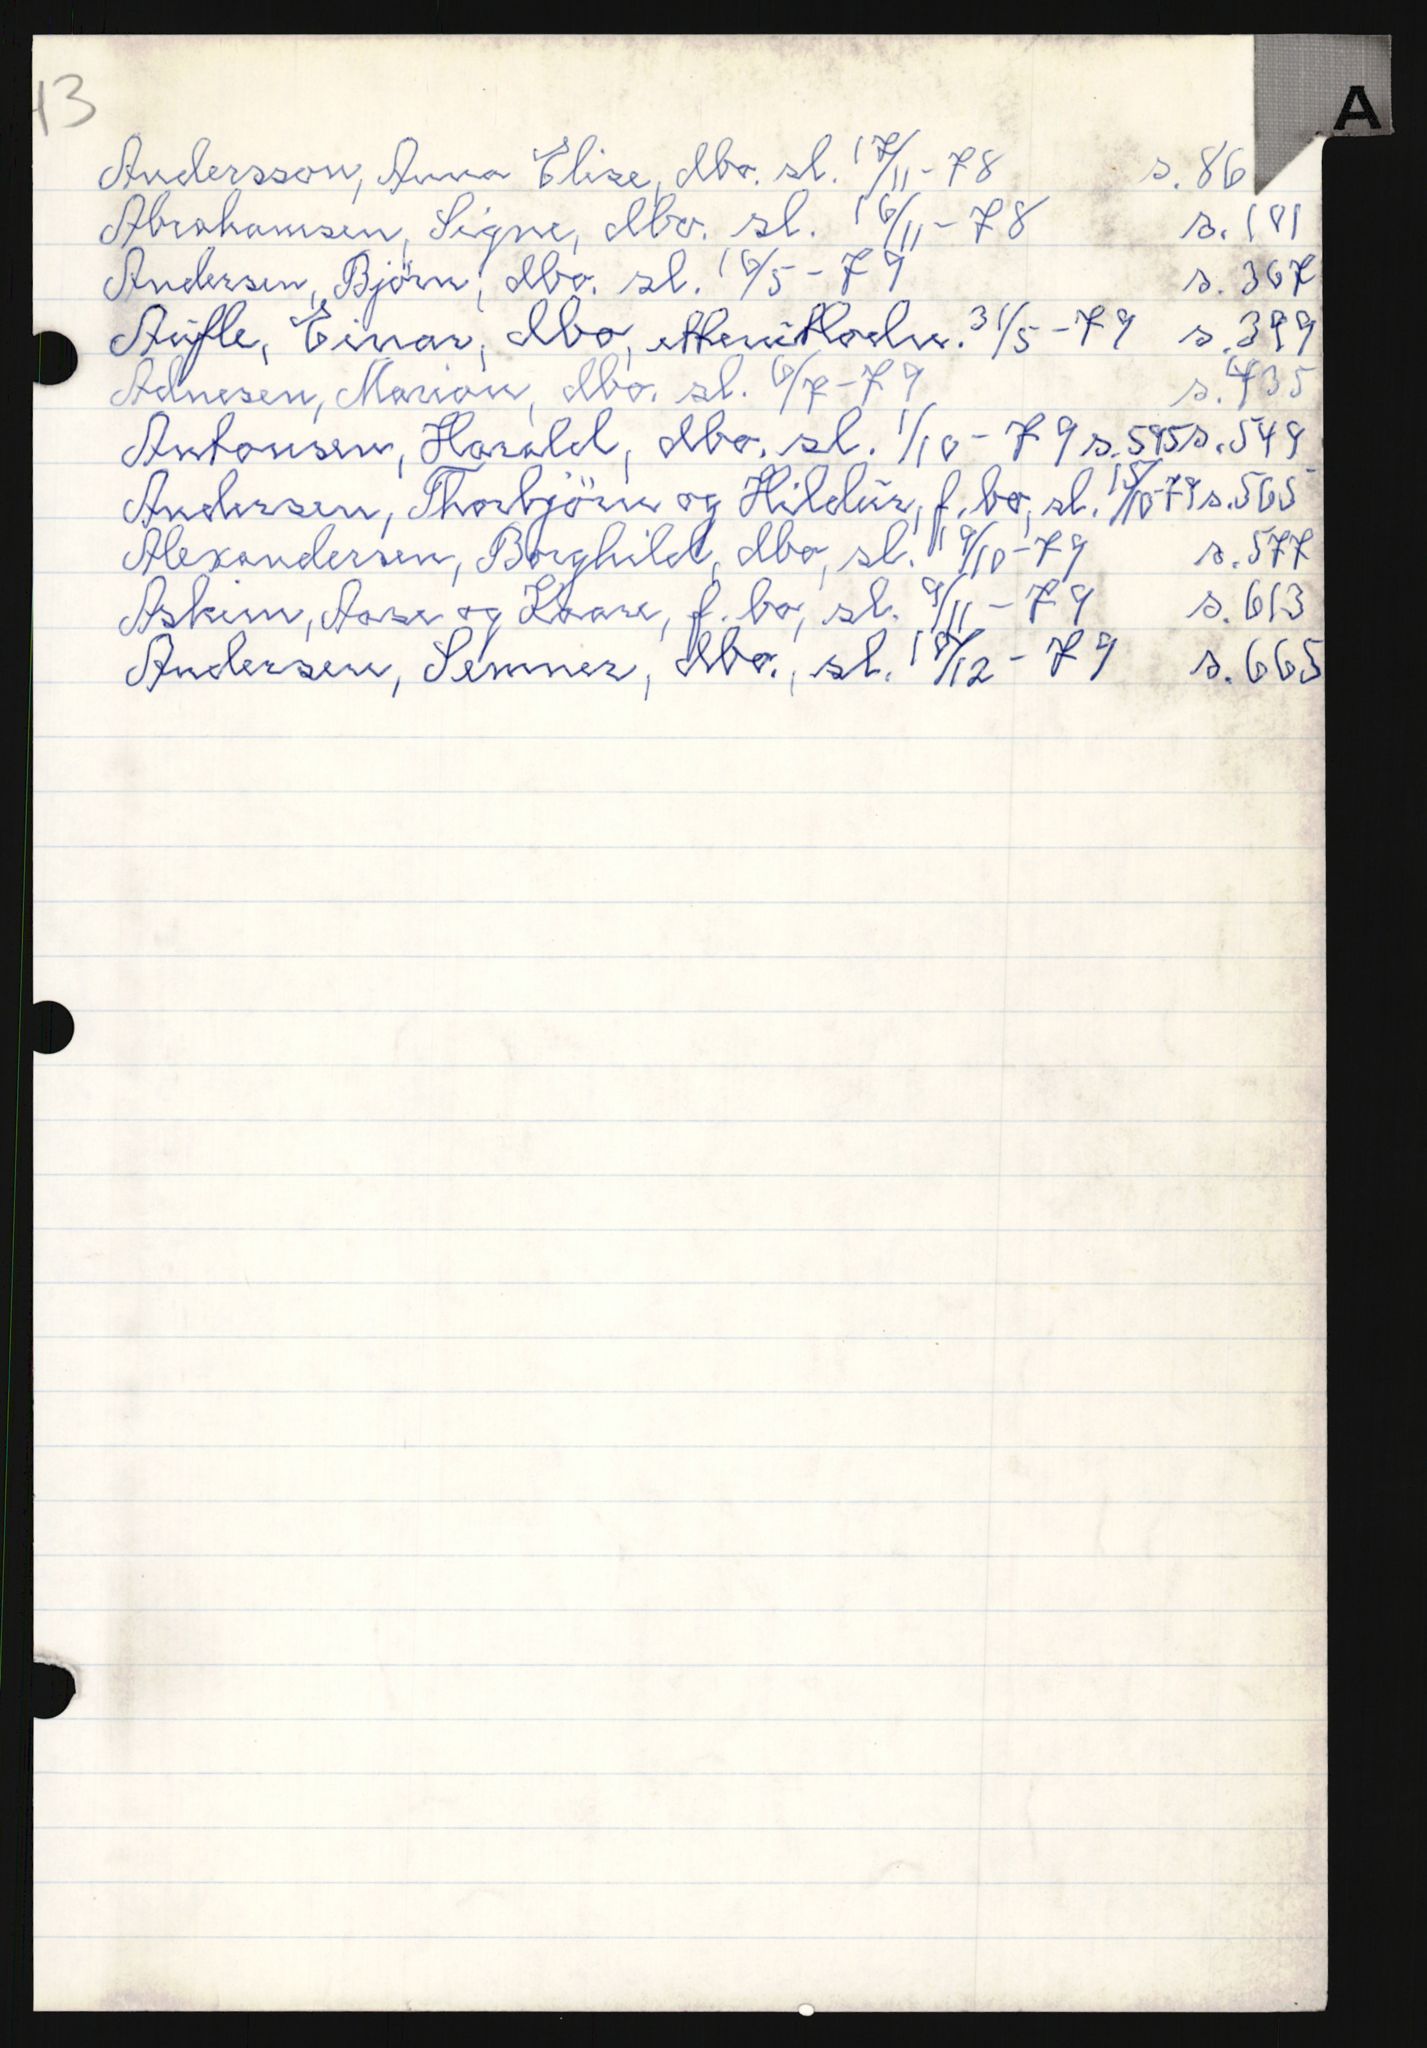 13
A
Andersson, Anna Elise, dbo. sl. 17/11-78 s. 86
Abrahamsen, Signe, dbo. sl. 16/11-78 s. 181
Andersen, Björn, dbo. sl. 16/5-79 s. 367
Aufle, Einar, dbo, 31/5-79 s. 399
Adnesen, Marion, dbo. sl. 6/7-79 s. 435
Antonsen, Harald, dbo. sl. 1/10-79 s. 595 s. 549
Andersen, Thorbjörn og Hildur, f. bo, sl. 15/10-79 s. 565
Alexandersen, Borghild, dbo, sl. 19/10-79 s. 577
Askim, Aase og Kaare, f. bo, sl. 9/11-79 s. 613
Andersen, Semmer, dbo., sl. 18/12-79 s. 665